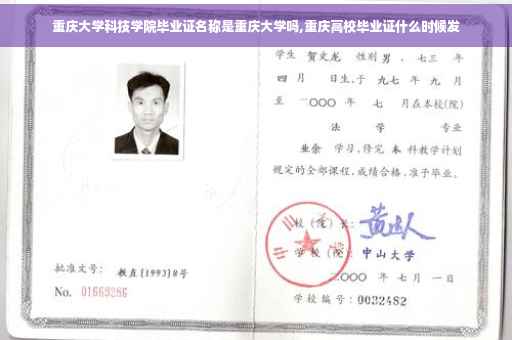 重庆大学科技学院毕业证名称是重庆大学吗,重庆高校毕业证什么时候发
学生 贺文龙 性别 男 、七三 年
四 月 日生,于 九七 年 九 月
至 二〇〇〇 年 七 月在本校(院)
法 学 专业
业余 学习,修完 本 科教学计划
规定的全部课程,成绩合格,准予毕业。
校(院)长:
学 校(院): 中山大学
二〇〇〇 年 七 月 一 日
批准文号: 教直[1993]8号
No. 01669286
学校编号: 0032482